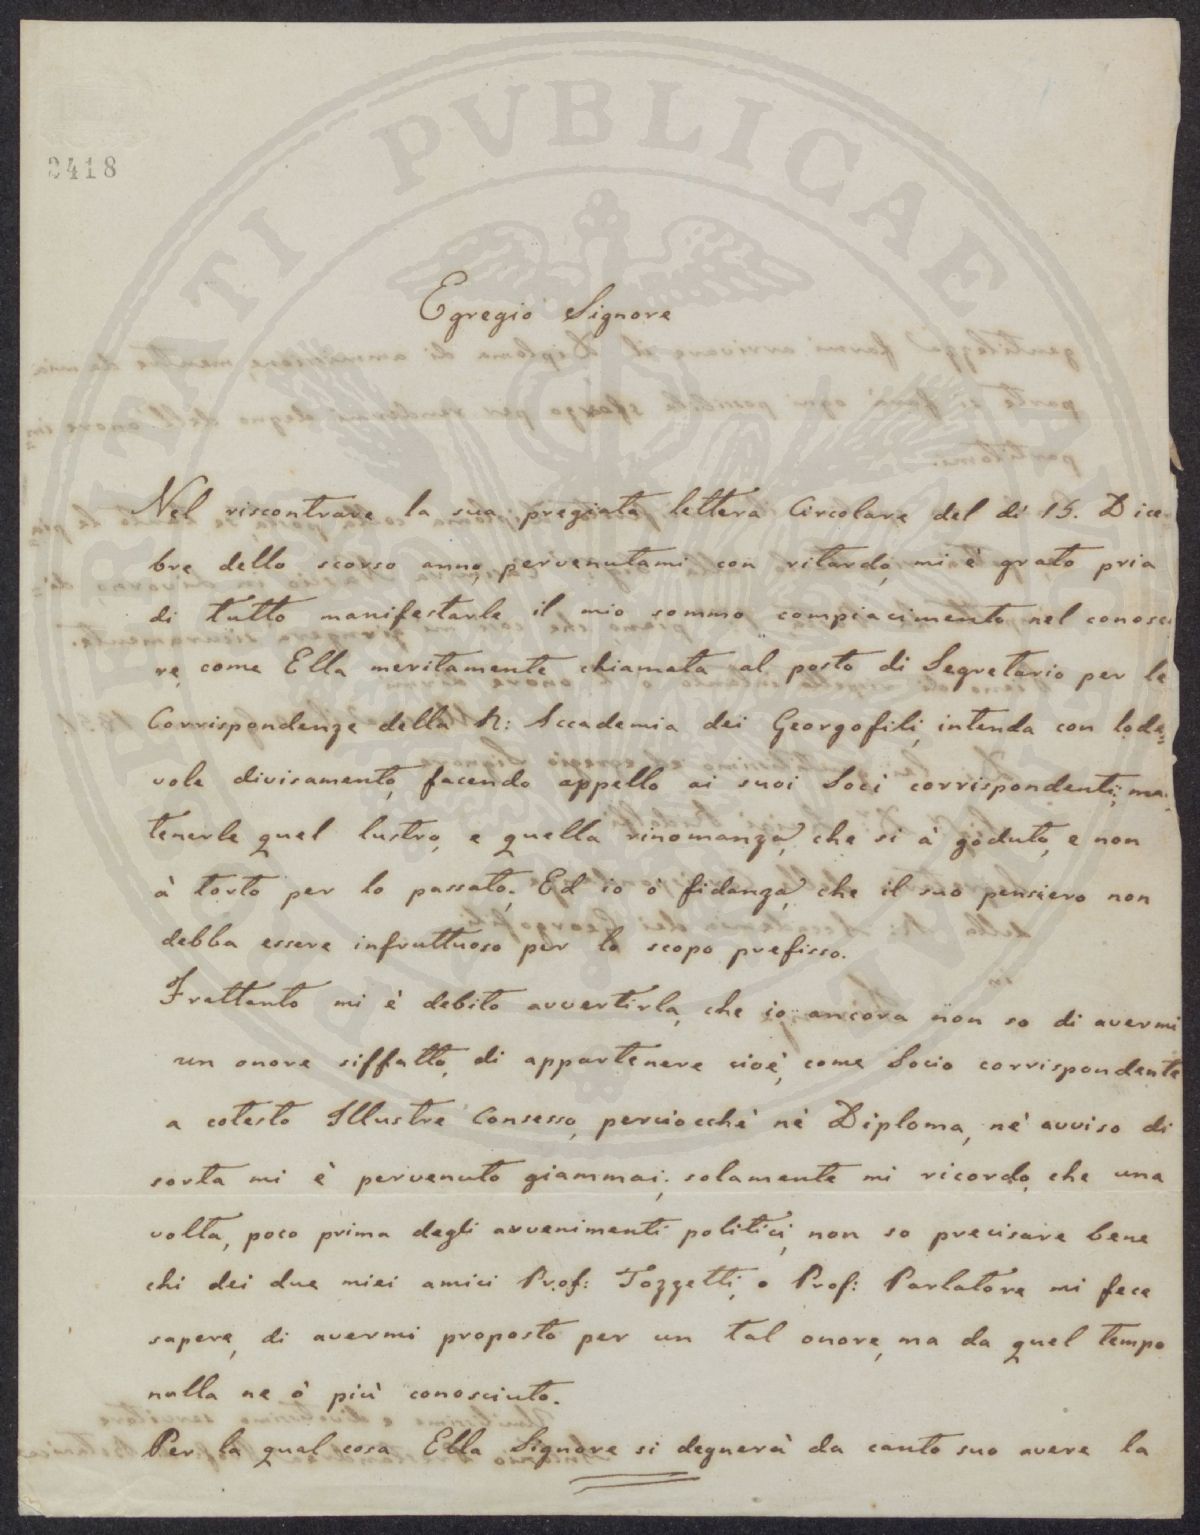 PROSPERITATI PUBLICAE AUGENDAE
2418
Egregio Signore
Nel riscontrare la sua pregiata lettera Circolare del dì 15. Dice-
bre dello scorso anno, pervenutami con ritardo, mi è grato pria
di tutto manifestarle il mio sommo compiacimento nel conosce
re, come Ella meritamente chiamata al posto di Segretario per le
Corrispondenze della R: Accademia dei Georgofili, intenda con lode=
vole divisamento, facendo appello ai suoi Soci corrispondenti, man
tenerle quel lustro, e quella rinomanza, che si à goduto, e non
à torto per lo passato. Ed io ò fidanza, che il suo pensiero non
debba essere infruttuoso per lo scopo prefisso.
Frattanto mi è debito avvertirla, che io ancora non so di avermi
un onore siffatto, di appartenere cioè, come Socio corrispondente
a cotesto Illustre Consesso, perciocchè nè Diploma, nè avviso di
sorta mi è pervenuto giammai; solamente mi ricordo, che una
volta, poco prima degli avvenimenti politici, non so precisare bene
chi dei due miei amici Prof: Tozzetti, o Prof: Parlatore mi fece
sapere, di avermi proposto per un tal onore, ma da quel tempo
nulla ne ò più conosciuto.
Per la qual cosa Ella Signore si degnerà da canto suo avere la